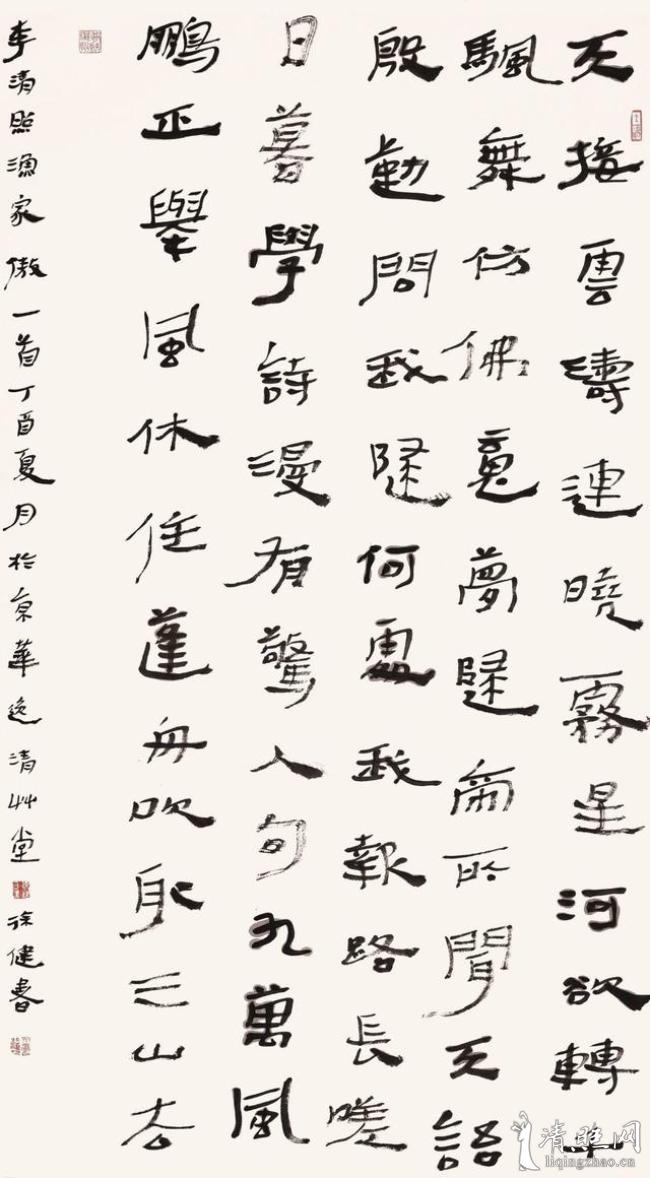 天接雲濤連曉霧星河欲轉千
颿舞仿佛魂夢歸帝所聞天語
殷勤問我歸何處我報路長嗟
日暮學詩漫有驚人句九萬風
鵬正舉風休住蓬舟吹取三山去
李清照漁家傲一首丁酉夏月於京華逸清艸堂徐健書
清照网
liqingzhao.cn